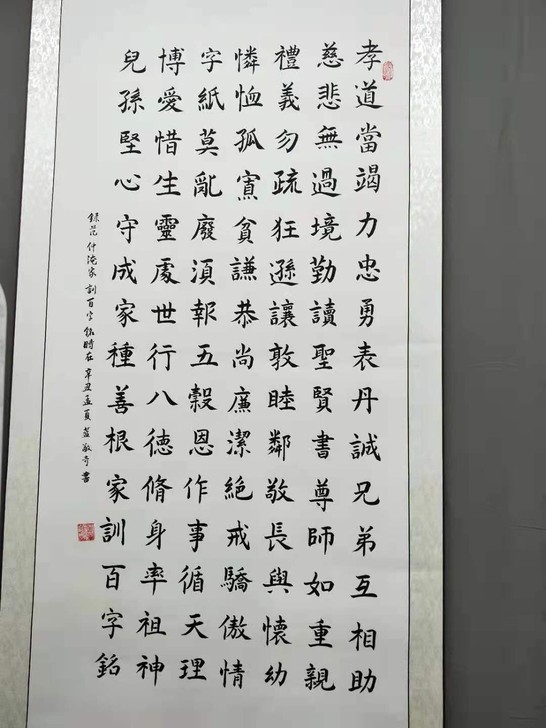 孝道當竭力忠勇表丹誠兄弟互相助
慈悲無過境勤讀聖賢書尊師如重親
禮義勿疏狂遜讓敦睦鄰敬長與懷幼
憐恤孤寡貧謙恭尚廉潔絕戒驕傲情
字紙莫亂廢須報五穀恩作事循天理
博愛惜生靈處世行八德脩身率祖神
兒孫堅心守成家種善根家訓百字銘
錄范仲淹家訓百字銘時在辛丑孟夏書